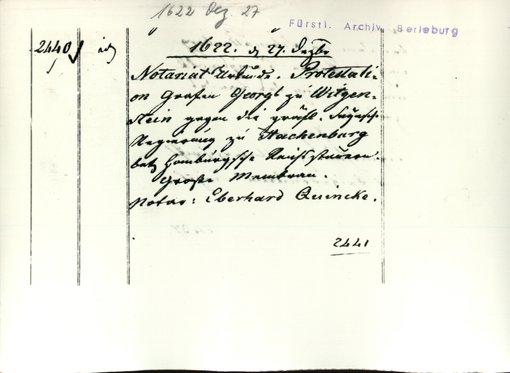 1622 Dez 27
Fürstl. Archiv Berleburg
2440
1622. d 27. Dezbr
Notariat Urkunde. Protestati-
on Grafen Georgs zu Witgen-
stein gegen die gräfl. Saynsche
Regierung zu Hachenburg
betr Homburgsche Reichssteuern.
Große Membran.
Notar: Eberhard Quincke.
2441